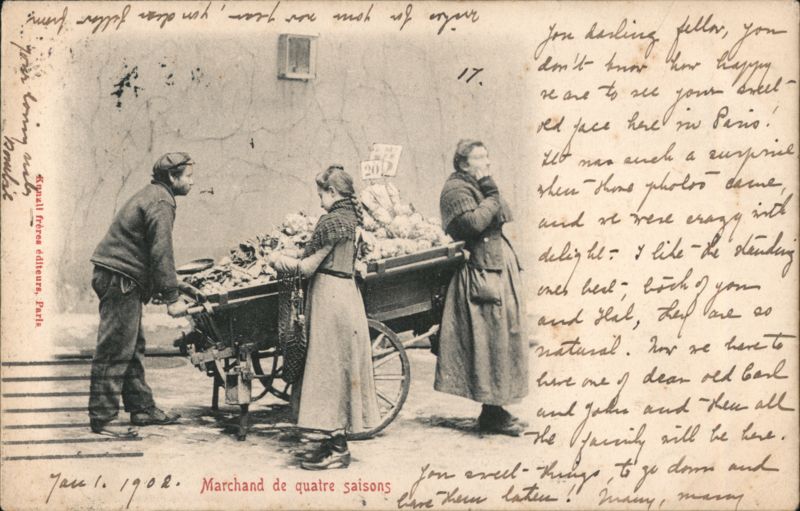 You darling fellow, you
don't know how happy
we are to see your sweet
old face here in Paris!
It was such a surprise
when those photos came,
and we were crazy with
delight - I like the standing
ones best, both of you
and Hal, they are so
natural. Now we have to
have one of dear old Carl
and John and then all
the family will be here.
You sweet things, to go down and
have them taken! Many, many
for you now and your, you dear fellow from
your loving
17.
20
Kunzli frères éditeurs, Paris
Jan 1. 1902.
Marchand de quatre saisons